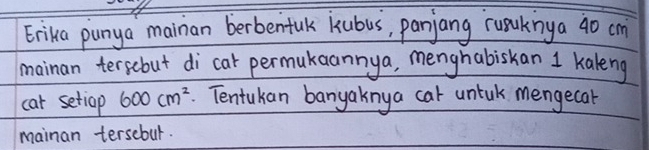 Erika punya mainan berbentuk kubus, panjang rusuknya 40 cm
mainan tersebut di cat permukaannya, menghabiskan 1 kaleng
cat setiap 600 cm². Tentukan banyaknya cat untuk mengecat
mainan tersebut.